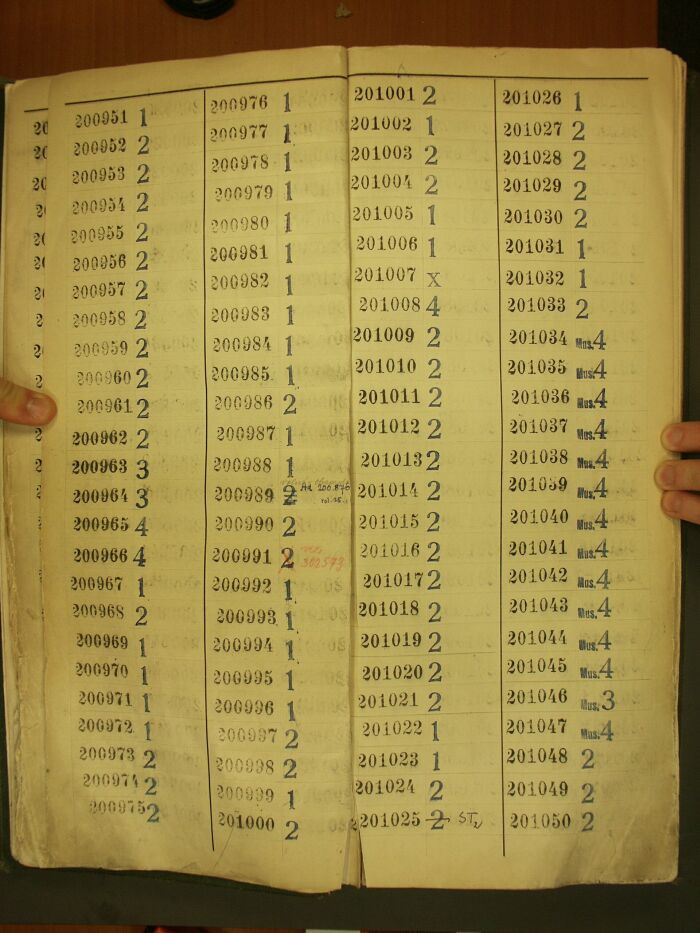 200951 1
200952 2
200953 2
200954 2
200955 2
200956 2
200957 2
200958 2
200959 2
200960 2
200961 2
200962 2
200963 3
200964 3
200965 4
200966 4
200967 1
200968 2
200969 1
200970 1
200971 1
200972 1
200973 2
200974 2
200975 2
200976 1
200977 1
200978 1
200979 1
200980 1
200981 1
200982 1
200983 1
200984 1
200985 1
200986 2
200987 1
200988 1
200989 2 Ad 200.876
200990 2
200991 2 302573
200992 1
200993 1
200994 1
200995 1
200996 1
200997 2
200998 2
200999 1
201000 2
201001 2
201002 1
201003 2
201004 2
201005 1
201006 1
201007 X
201008 4
201009 2
201010 2
201011 2
201012 2
201013 2
201014 2
201015 2
201016 2
201017 2
201018 2
201019 2
201020 2
201021 2
201022 1
201023 1
201024 2
201025 2
201026 1
201027 2
201028 2
201029 2
201030 2
201031 1
201032 1
201033 2
201034 Mus. 4
201035 Mus. 4
201036 Mus. 4
201037 Mus. 4
201038 Mus. 4
201039 Mus. 4
201040 Mus. 4
201041 Mus. 4
201042 Mus. 4
201043 Mus. 4
201044 Mus. 4
201045 Mus. 4
201046 Mus. 3
201047 Mus. 4
201048 2
201049 2
201050 2